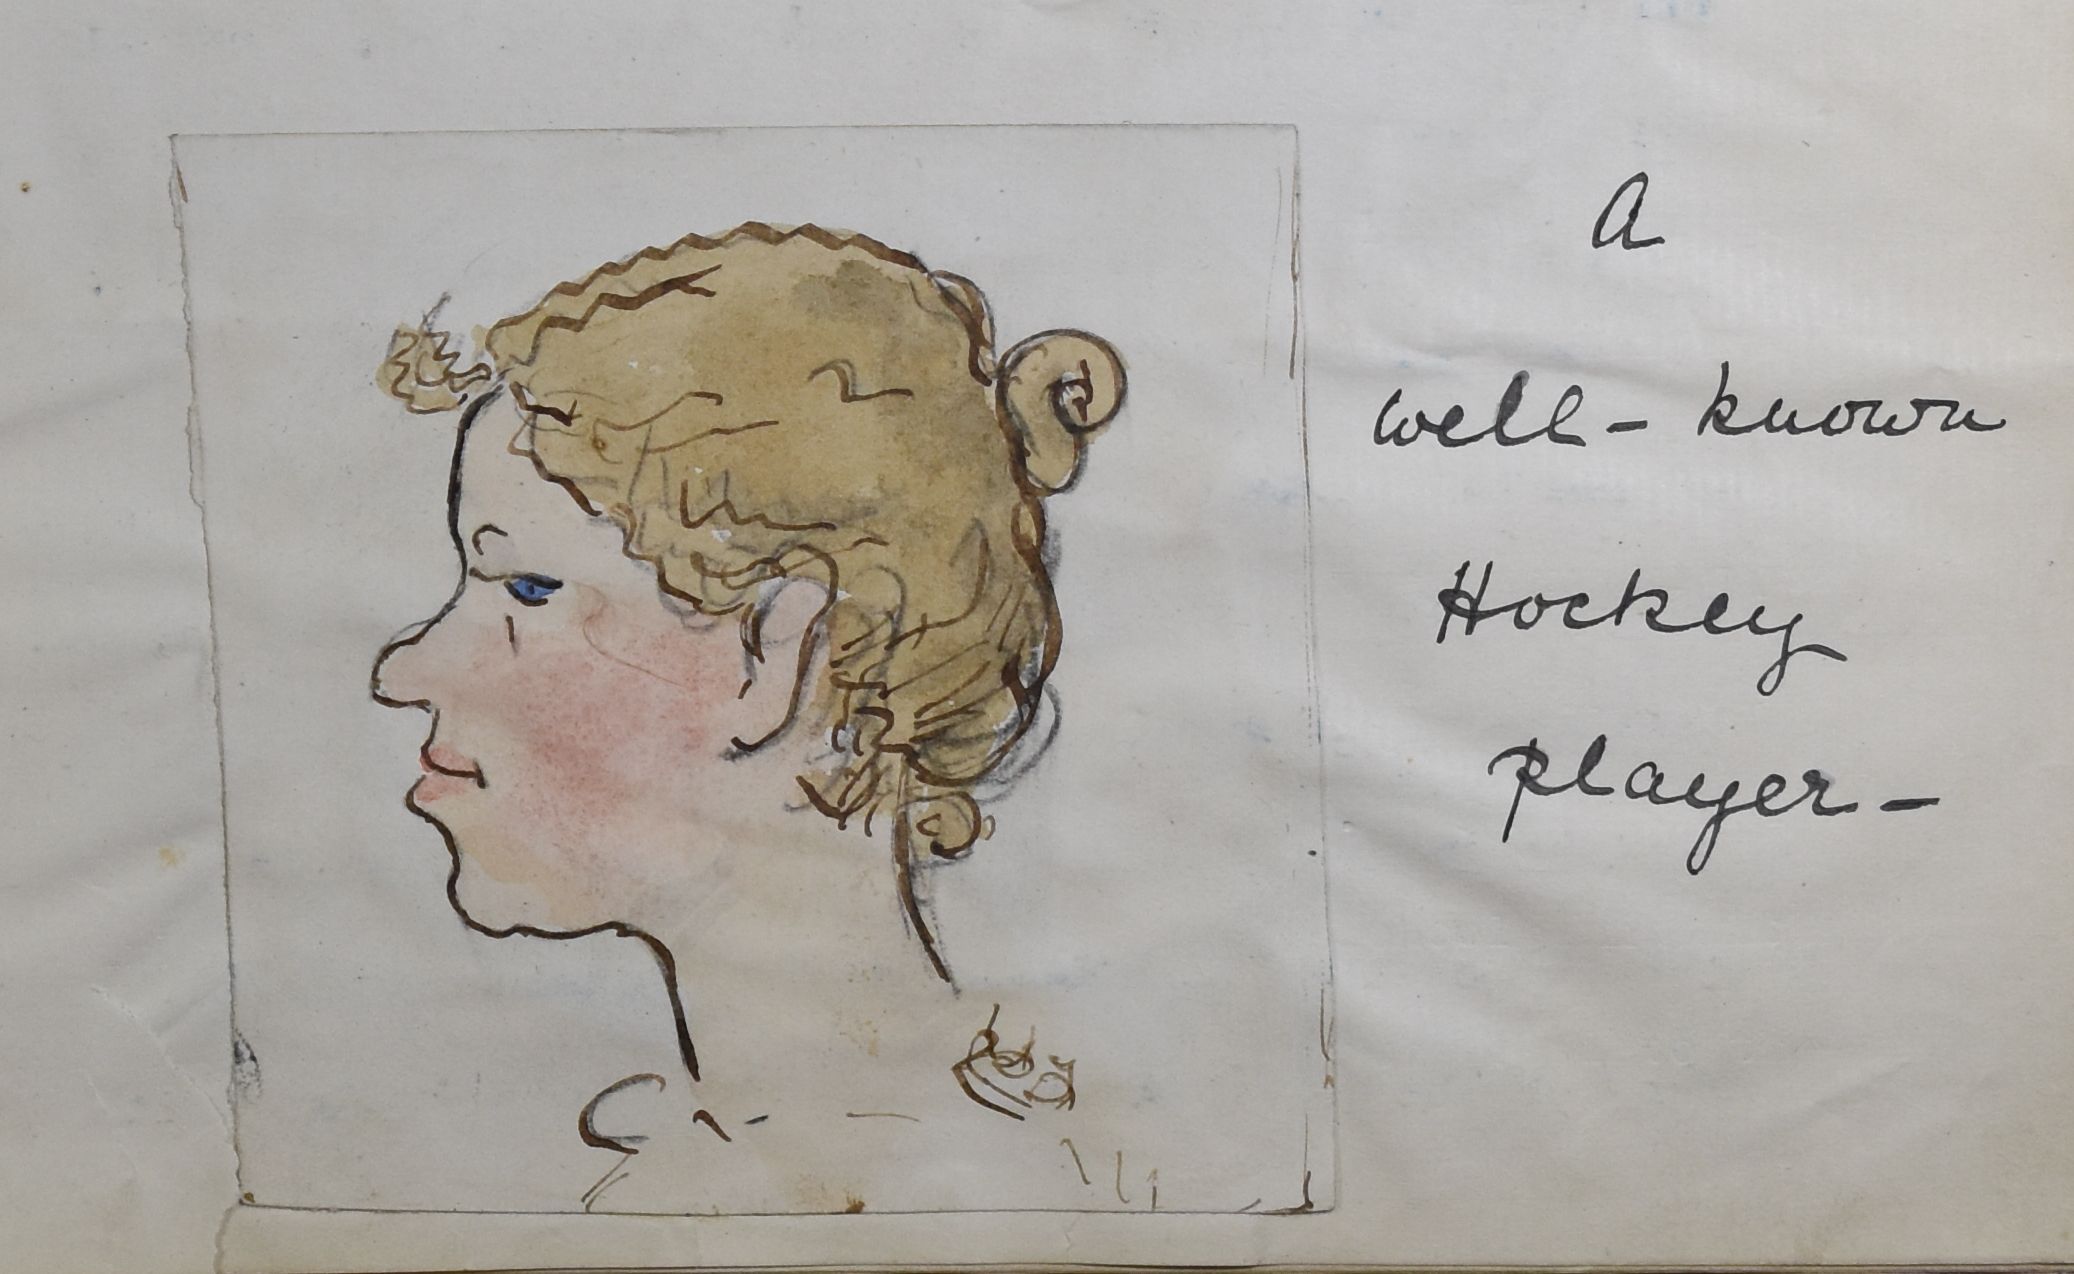 A
well-known
Hockey
player-